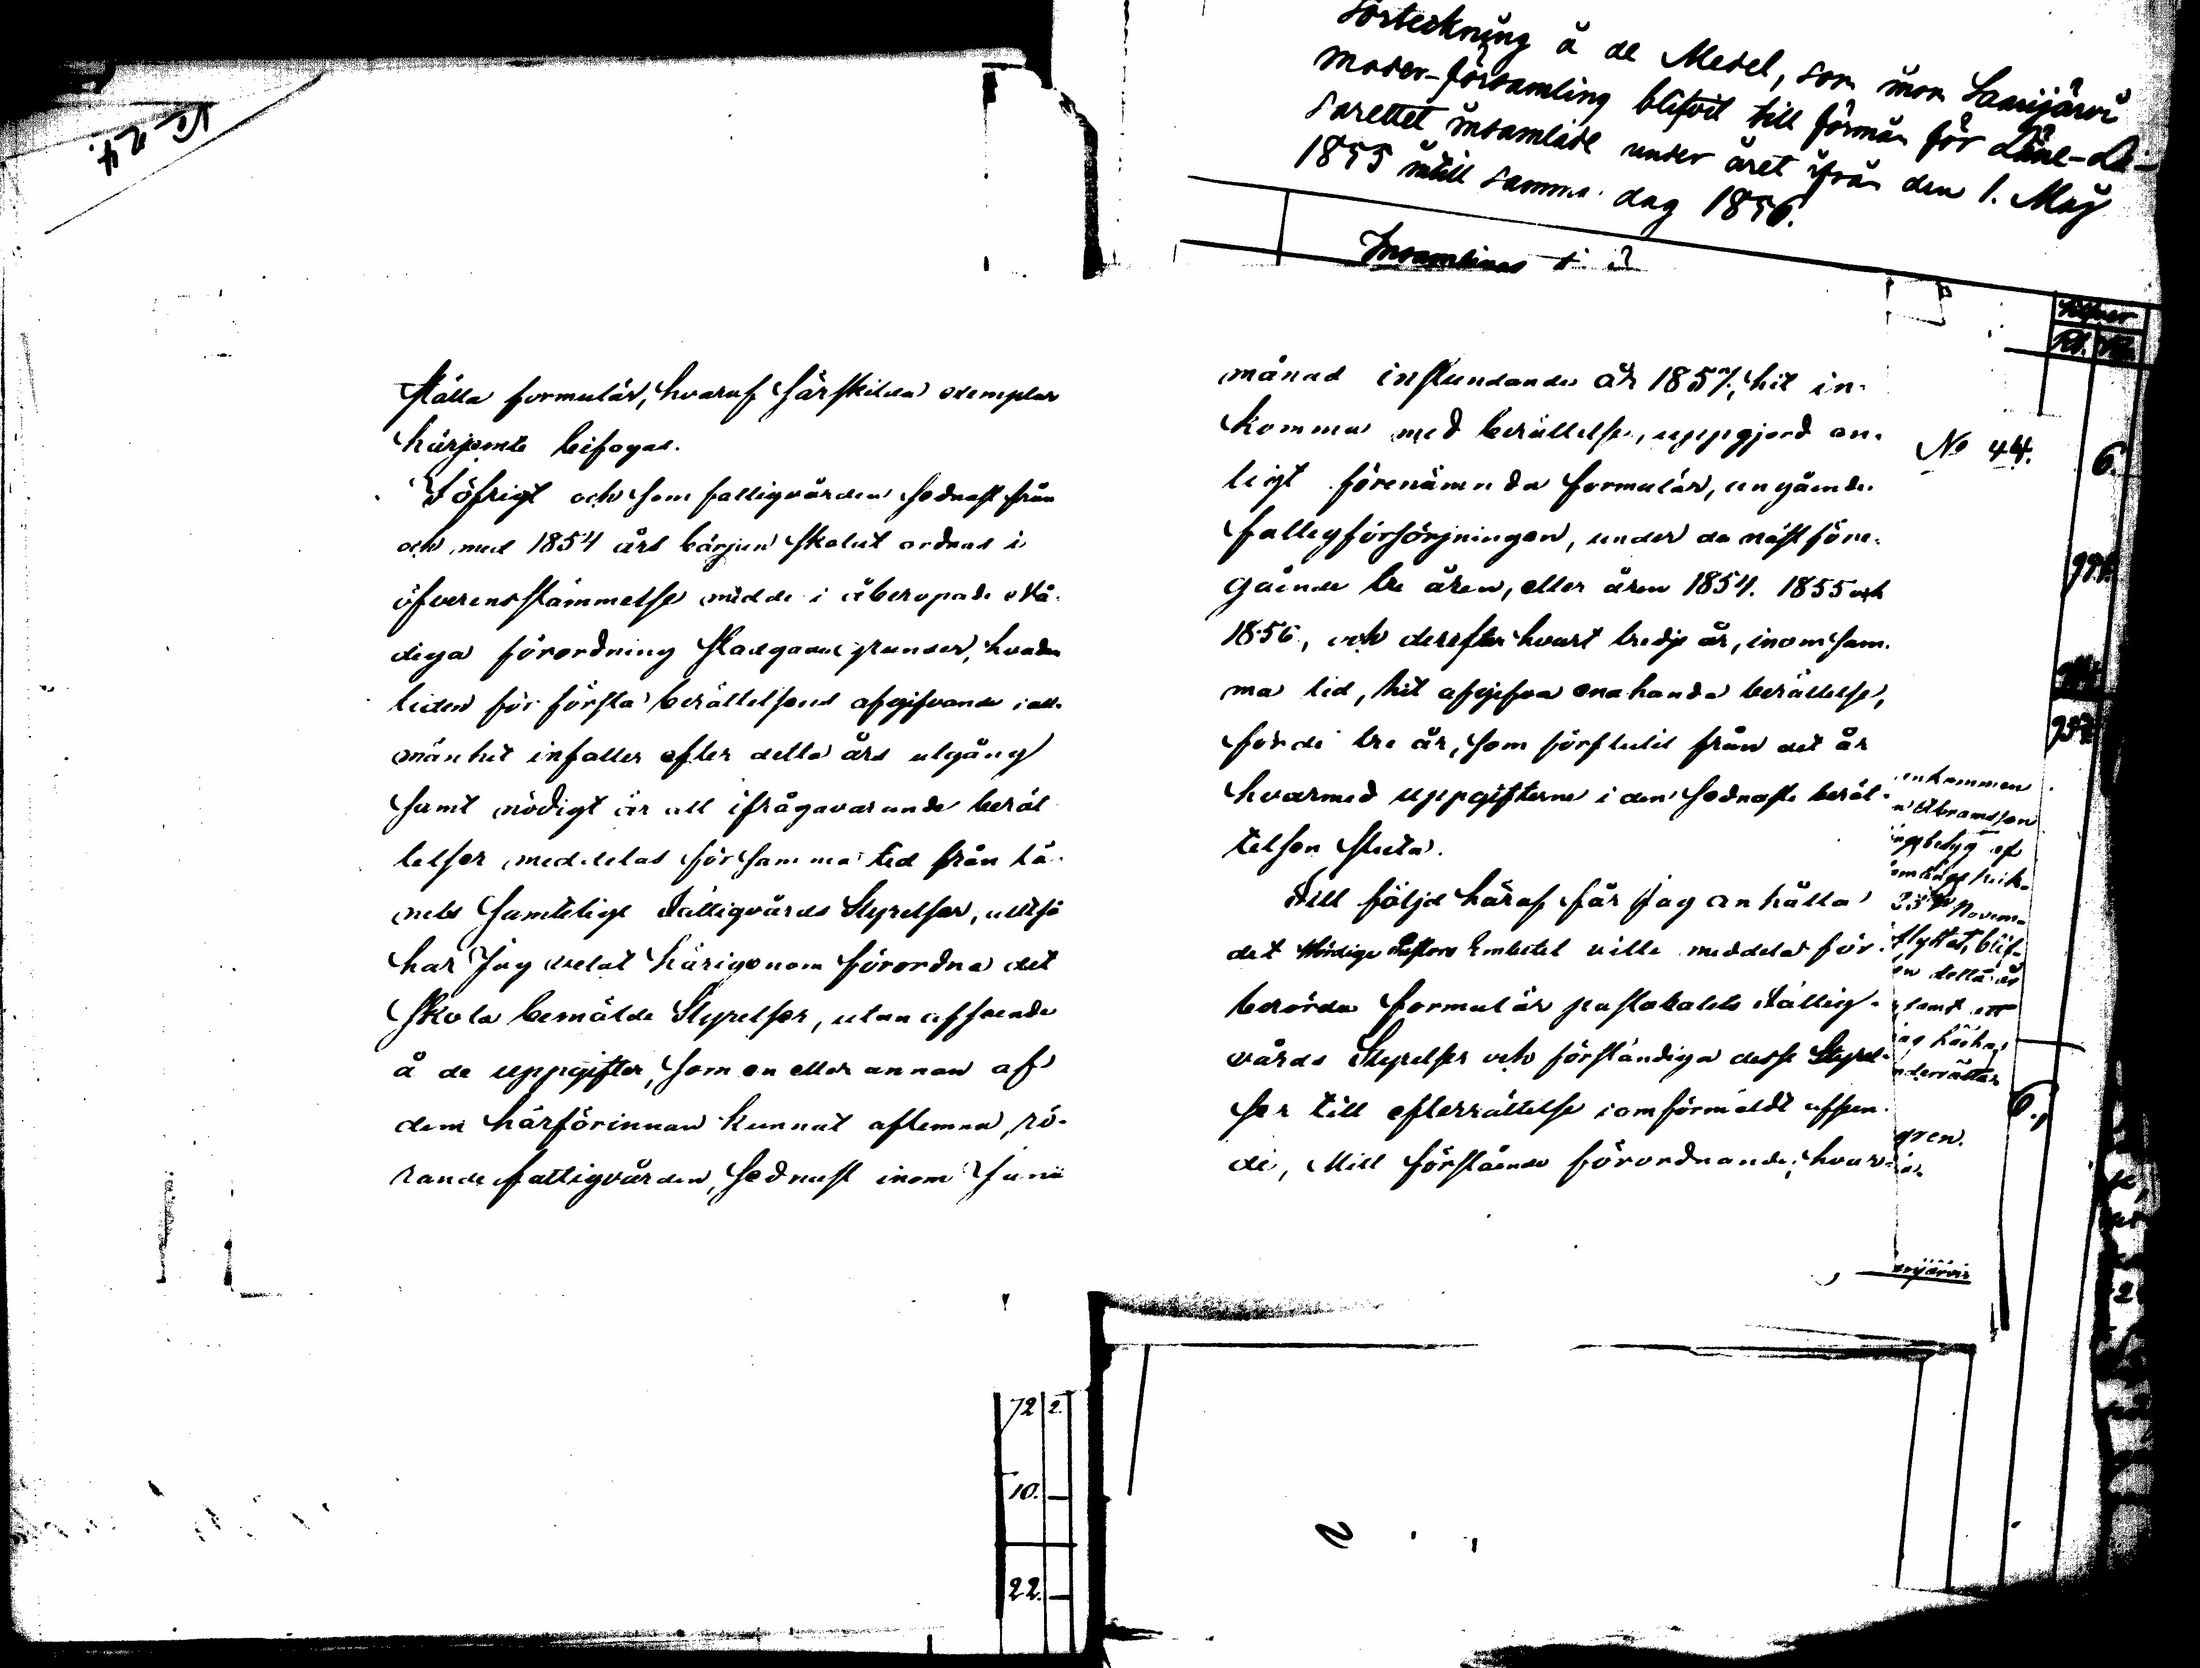 No 24.
Förteckning å de Medel, som inom Saarijärvi
moder-församling blifvit till förmån för Läne-La-
sarettet insamlade under året ifrån den 1. Maij
1855 intill samma dag 1856.
Insamlings
Silfver
Rb.
ställa formulär, hvaraf särskilda exemplar
härjemte bifogas.
I öfrigt och som fattigvården sednast från
och med 1854 års början skolat ordnas i
öfverensstämmelse med de i åberopade nå-
diga förordning stadgade grunder, hvadan
tiden för första berättelsens afgifvande i all-
mänhet infaller efter detta års utgång
samt nödigt är att ifrågavarande berät-
telser meddelas för samma tid från Lä-
nets samtelige Fattigvårds Styrelser, alltså
har Jag velat härigenom förordna det
skola bemälde Styrelser, utan afseende
å de uppgifter, som en eller annan af
dem härförinnan kunnat aflemna, rö-
rande fattigvården, sednast inom Junii
månad instundande år 1857, hit in-
komma med berättelse, uppgjord en-
ligt förenämnda formulär, angående
fattigförsörjningen, under de näst före-
gående tre åren, eller åren 1854. 1855 och
1856, och derefter hvart tredje år, inom sam-
ma tid, hit afgifva enahanda berättelse,
för de tre år, som förflutit från det år
hvarmed uppgifterne i den sednaste berät-
telsen sluta.
Till följd häraf får Jag anhålla
det Vördige Pastors Embetet ville meddela för-
berörda formulär pastoratets Fattig-
vårds Styrelser och förständiga desse Styrel-
ser till efterrättelse i omförmäldt afseen-
de, Mitt förstående förordnande; hvar-
No 44.
6.
937
enkommen
Abramsson
ingsbetyg af
25 Novem-
flyttat, blif-
en detta år
samt ett
underrättar
gren.
6.,
72 2.
10. —
22. —
2